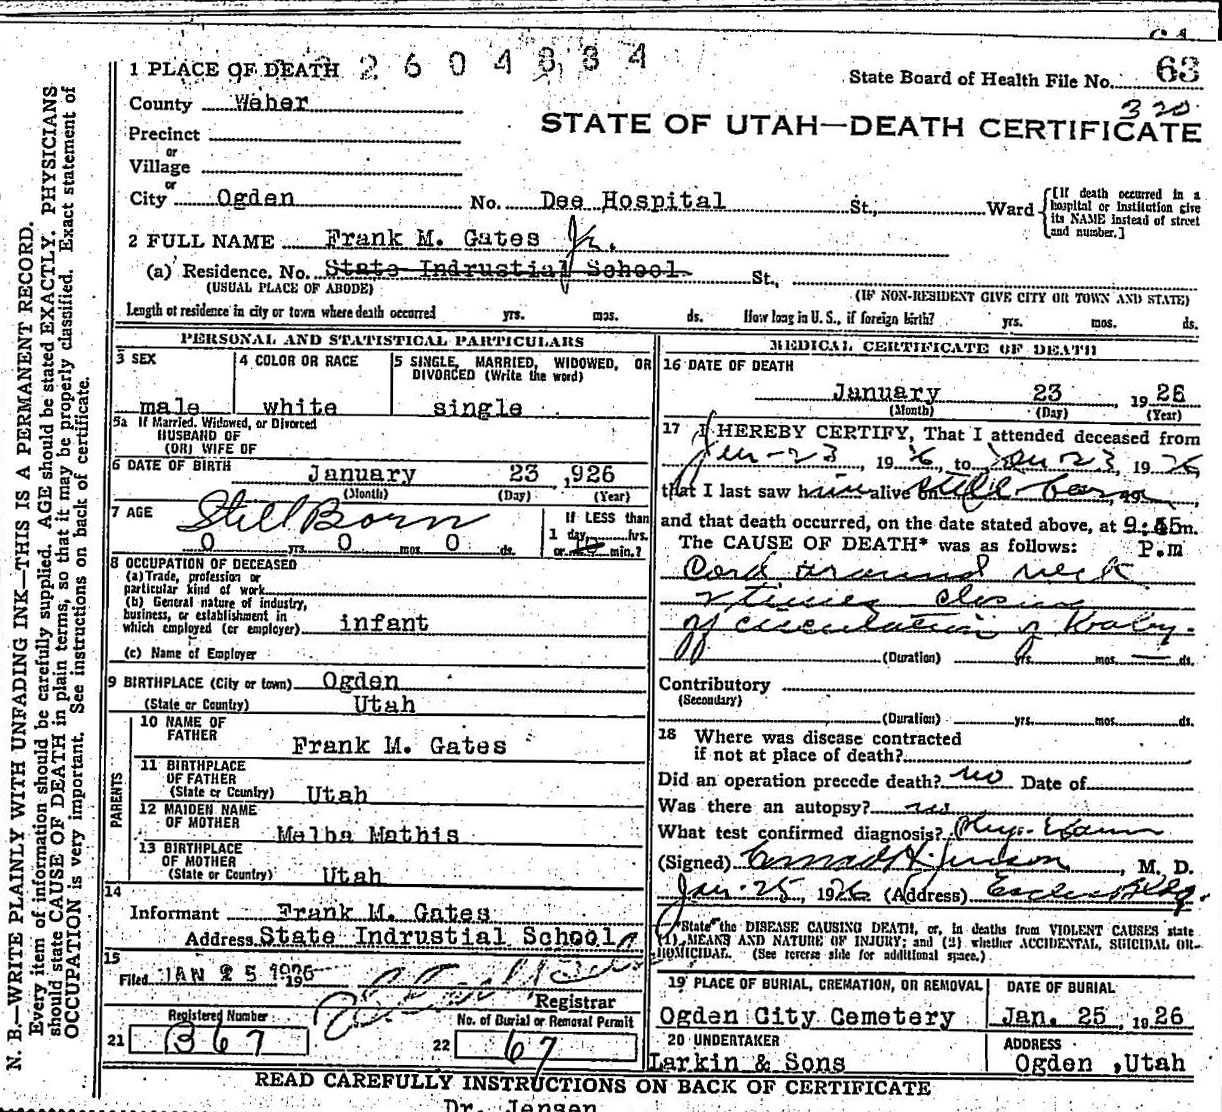 2604834
1 PLACE OF DEATH
State Board of Health File No. 63
County Weber
320
STATE OF UTAH—DEATH CERTIFICATE
Precinct
or
Village
or
City Ogden No. Dee Hospital St., Ward
[If death occurred in a hospital or institution give its NAME instead of street and number.]
2 FULL NAME Frank M. Gates Jr.
(a) Residence. No. State Indrustial School St.,
(USUAL PLACE OF ABODE) (IF NON-RESIDENT GIVE CITY OR TOWN AND STATE)
Length of residence in city or town where death occurred yrs. mos. ds. How long in U. S., if foreign birth? yrs. mos. ds.
PERSONAL AND STATISTICAL PARTICULARS
3 SEX 4 COLOR OR RACE 5 SINGLE, MARRIED, WIDOWED, OR
DIVORCED (Write the word)
male white single
5a If Married, Widowed, or Divorced
HUSBAND OF
(OR) WIFE OF
6 DATE OF BIRTH January 23 ,926
(Month) (Day) (Year)
7 AGE Still Born If LESS than
0 yrs. 0 mos. 0 ds. 1 day, hrs.
or min.?
8 OCCUPATION OF DECEASED
(a) Trade, profession or
particular kind of work
(b) General nature of industry,
business, or establishment in
which employed (or employer) infant
(c) Name of Employer
9 BIRTHPLACE (City or town) Ogden
(State or Country) Utah
PARENTS
10 NAME OF
FATHER Frank M. Gates
11 BIRTHPLACE
OF FATHER
(State or Country) Utah
12 MAIDEN NAME
OF MOTHER Melba Mathis
13 BIRTHPLACE
OF MOTHER
(State or Country) Utah
14
Informant Frank M. Gates
Address State Indrustial School
15
Filed JAN 25 1926 19
Registrar
Registered Number No. of Burial or Removal Permit
21 367 22 67
MEDICAL CERTIFICATE OF DEATH
16 DATE OF DEATH
January 23 , 19 26
(Month) (Day) (Year)
17 I HEREBY CERTIFY, That I attended deceased from
Jan-23, 1926, to Jan 23, 1926
that I last saw him alive on still born, 19
and that death occurred, on the date stated above, at 9:45 m.
The CAUSE OF DEATH* was as follows: P.m
Cord around neck
2 times closing
off circulation of baby.
(Duration) yrs. mos. — ds.
Contributory
(Secondary)
(Duration) yrs. mos. ds.
18 Where was disease contracted
if not at place of death?
Did an operation precede death? no Date of
Was there an autopsy? no
What test confirmed diagnosis? Phys. Exam
(Signed) Conrad H. Jenson, M. D.
Jan-25, 1926 (Address) Eccles Bldg.
*State the DISEASE CAUSING DEATH, or, in deaths from VIOLENT CAUSES state
(1) MEANS AND NATURE OF INJURY; and (2) whether ACCIDENTAL, SUICIDAL OR
HOMICIDAL. (See reverse side for additional space.)
19 PLACE OF BURIAL, CREMATION, OR REMOVAL DATE OF BURIAL
Ogden City Cemetery Jan. 25 , 1926
20 UNDERTAKER ADDRESS
Larkin & Sons Ogden ,Utah
READ CAREFULLY INSTRUCTIONS ON BACK OF CERTIFICATE
Dr. Jensen
N. B.—WRITE PLAINLY WITH UNFADING INK—THIS IS A PERMANENT RECORD.
Every item of information should be carefully supplied. AGE should be stated EXACTLY. PHYSICIANS
should state CAUSE OF DEATH in plain terms, so that it may be properly classified. Exact statement of
OCCUPATION is very important. See instructions on back of certificate.